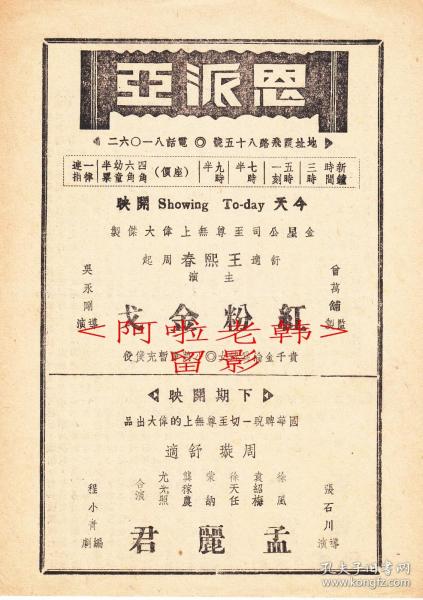 恩派亞
地址霞飛路八十五號◎電話八一〇六二
新鐘時間 三時 五時一刻 七時半 九時半 (座價) 四角 六角 幼童半票 一律連指
今天 Showing To-day 開映
金星公司至尊無上偉大傑製
舒適 王熙春 周起
主演
曾萬鋪監製
紅粉金戈
吳永剛導演
<阿啦老韩>
留影
下期開映
國華睥睨一切至尊無上的偉大出品
周璇 舒適
徐風 袁紹梅 徐天任 蒙納 龔稼農 尤光照 合演
張石川導演
孟麗君
程小青編劇
孔夫子旧书网
kongfz.com